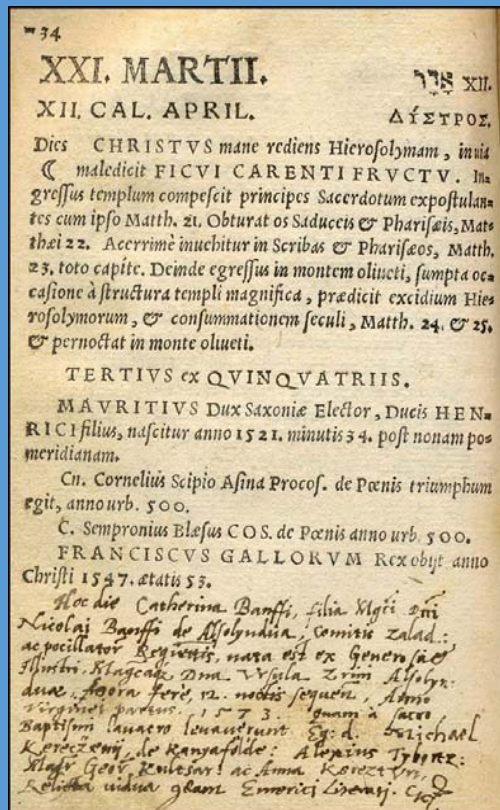 34
XXI. MARTII. אֲדָר XII.
XII. CAL. APRIL. ΔΊΣΤΡΟΣ.
Dies CHRISTVS mane rediens Hierosolymam, in uia
☾ maledicit FICVI CARENTI FRVCTV. In-
gressus templum compescit principes Sacerdotum expostulan-
tes cum ipso Matth. 21. Obturat os Saduceis & Pharisæis, Mat-
thæi 22. Acerrimè inuehitur in Scribas & Pharisæos, Matth.
23. toto capite. Deinde egressus in montem oliueti, sumpta oc-
casione à structura templi magnifica, prædicit excidium Hie-
rosolymorum, & consummationem seculi, Matth. 24. & 25.
& pernoctat in monte oliueti.
TERTIVS ex QVINQVATRIIS.
MAVRITIVS Dux Saxoniæ Elector, Ducis HEN-
RICI filius, nascitur anno 1521. minutis 34. post nonam po-
meridianam.
Cn. Cornelius Scipio Asina Procos. de Pœnis triumphum
egit, anno urb. 500.
C. Sempronius Blæsus COS. de Pœnis anno urb. 500.
FRANCISCVS GALLORVM Rex obijt anno
Christi 1547. ætatis 53.
Hoc die Catherina Banffi, filia
Nicolai Banffi de Alsolyndua, Comitis Zalad:
ac pocillator nata est ex Generosa
Vrsula Zrini Alsolyn:
duæ, hora fere, 12. noctis sequen, Anno
Virginei partus. 1573. quam à sacro
Baptismi lauacro leuauerunt Eg: d. Michael
Kereczeny, de Kanyafölde: Alexius
Geor. Kultsar: ac Anna
Relicta vidua Emerici